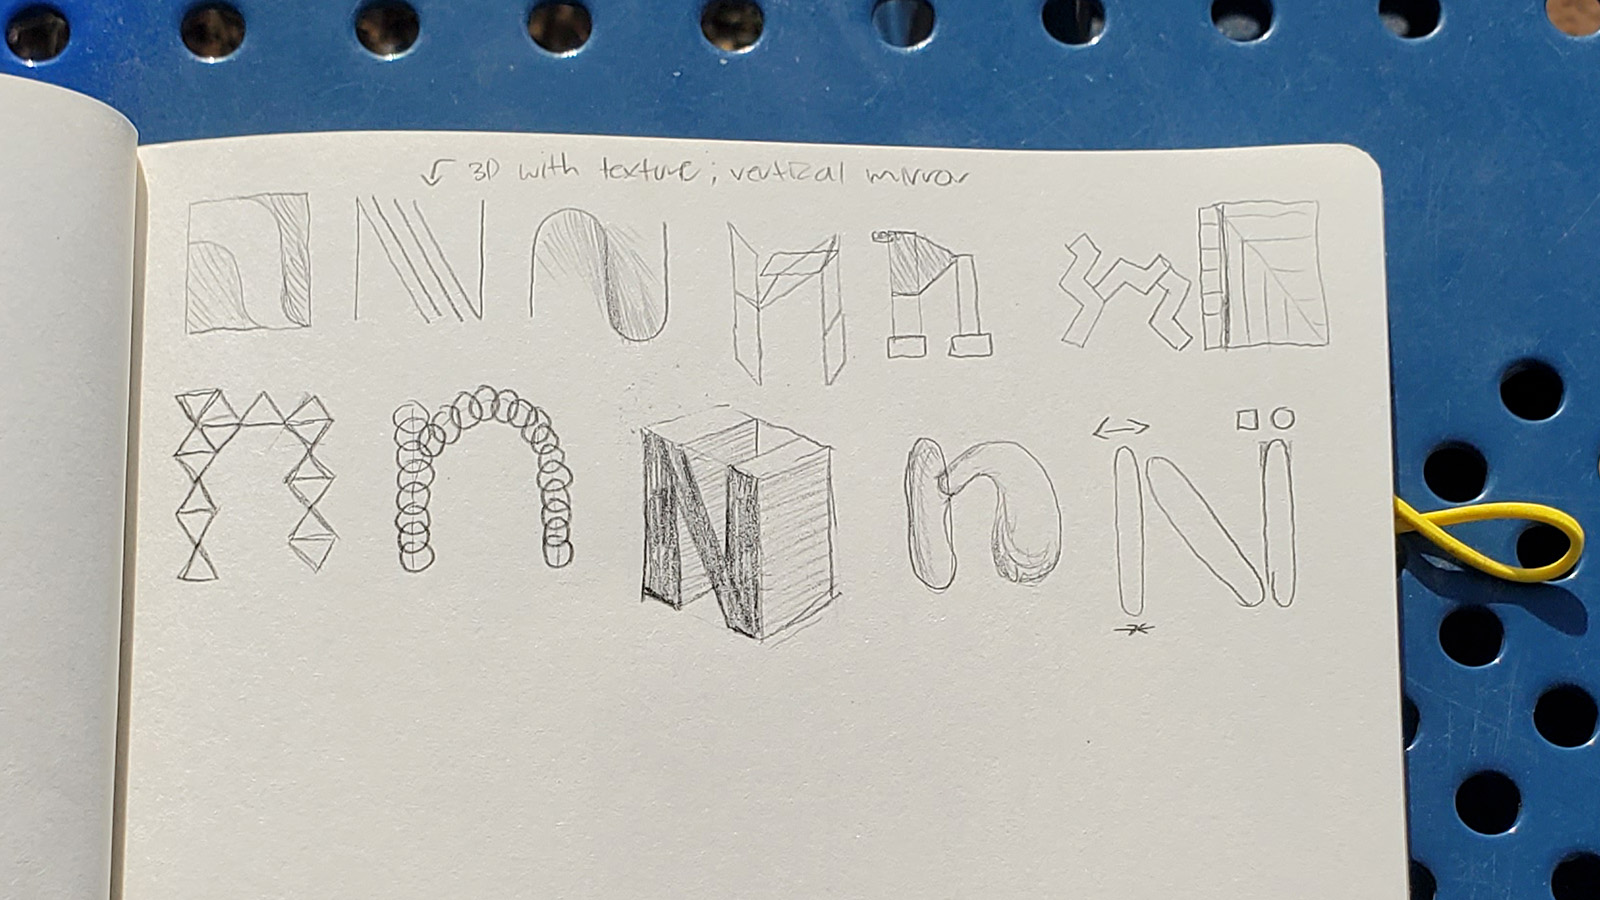 3D with texture; vertical mirror
N N N n n n N
n n N n N